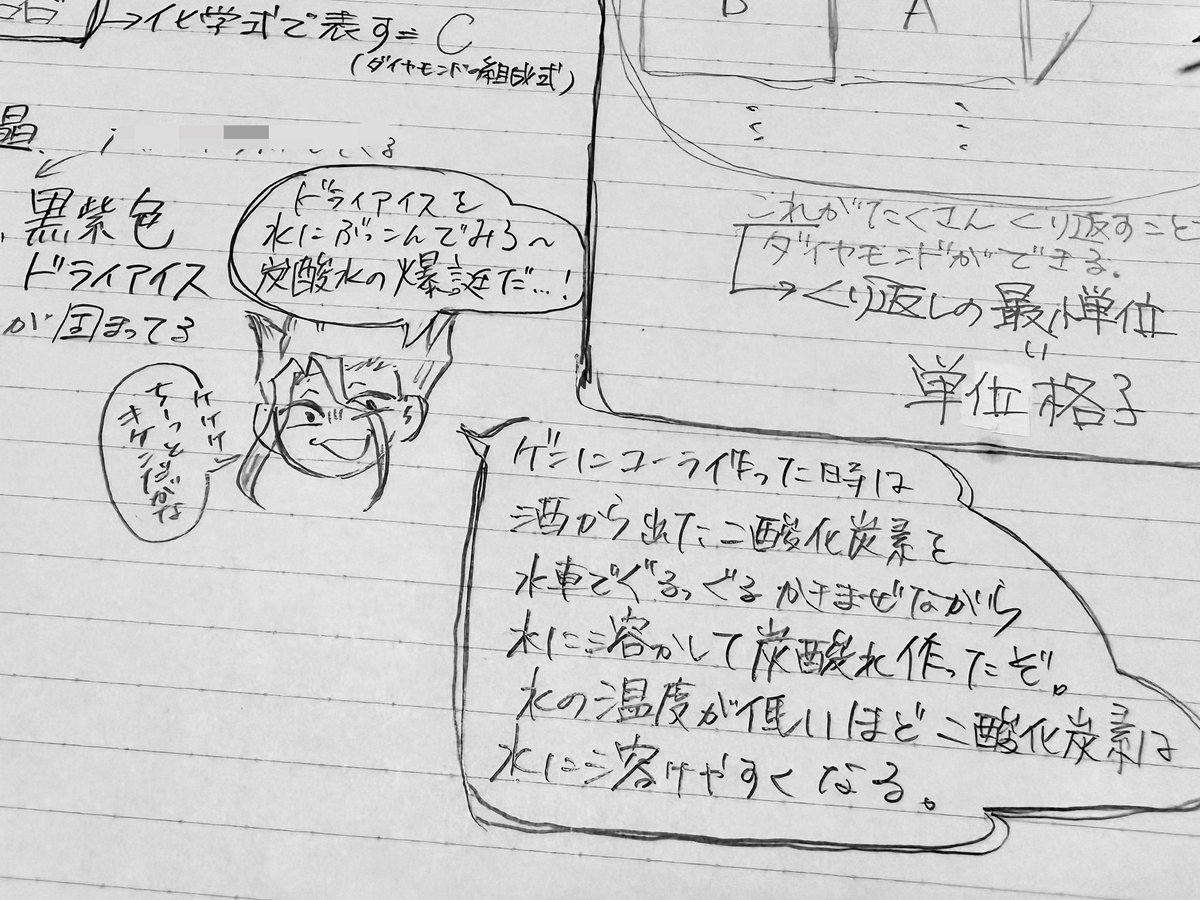 →化学式で表す= C
(ダイヤモンドの組成式)
晶
黒紫色
ドライアイス
が固まってる
ドライアイスを
水にぶっこんでみろ〜
炭酸水の爆誕だ…!
ケケケ
ちーっと
キケンだがな
B A
これがたくさんくり返すこと
ダイヤモンドができる。
→くり返しの最小単位
い
単位格子
ゲンにコーラ作った時は
酒から出た二酸化炭素を
水車でぐるっぐるかきまぜながら
水に溶かして炭酸水作ったぞ。
水の温度が低いほど二酸化炭素は
水に溶けやすくなる。